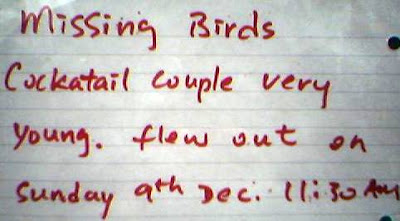 Missing Birds
Cockatail couple very
young. flew out on
Sunday 9th Dec. 11:30 AM